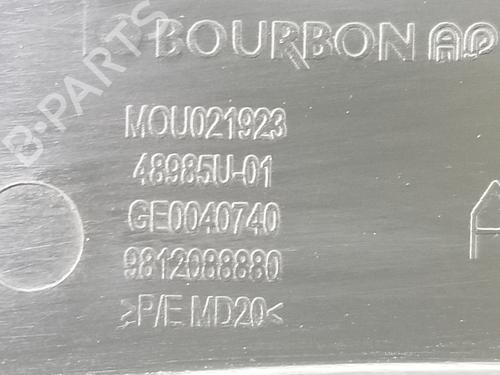 BOURBON AP
B-PARTS
MOU021923
48985U-01
GE0040740
9812088880
>P/E MD20<
A